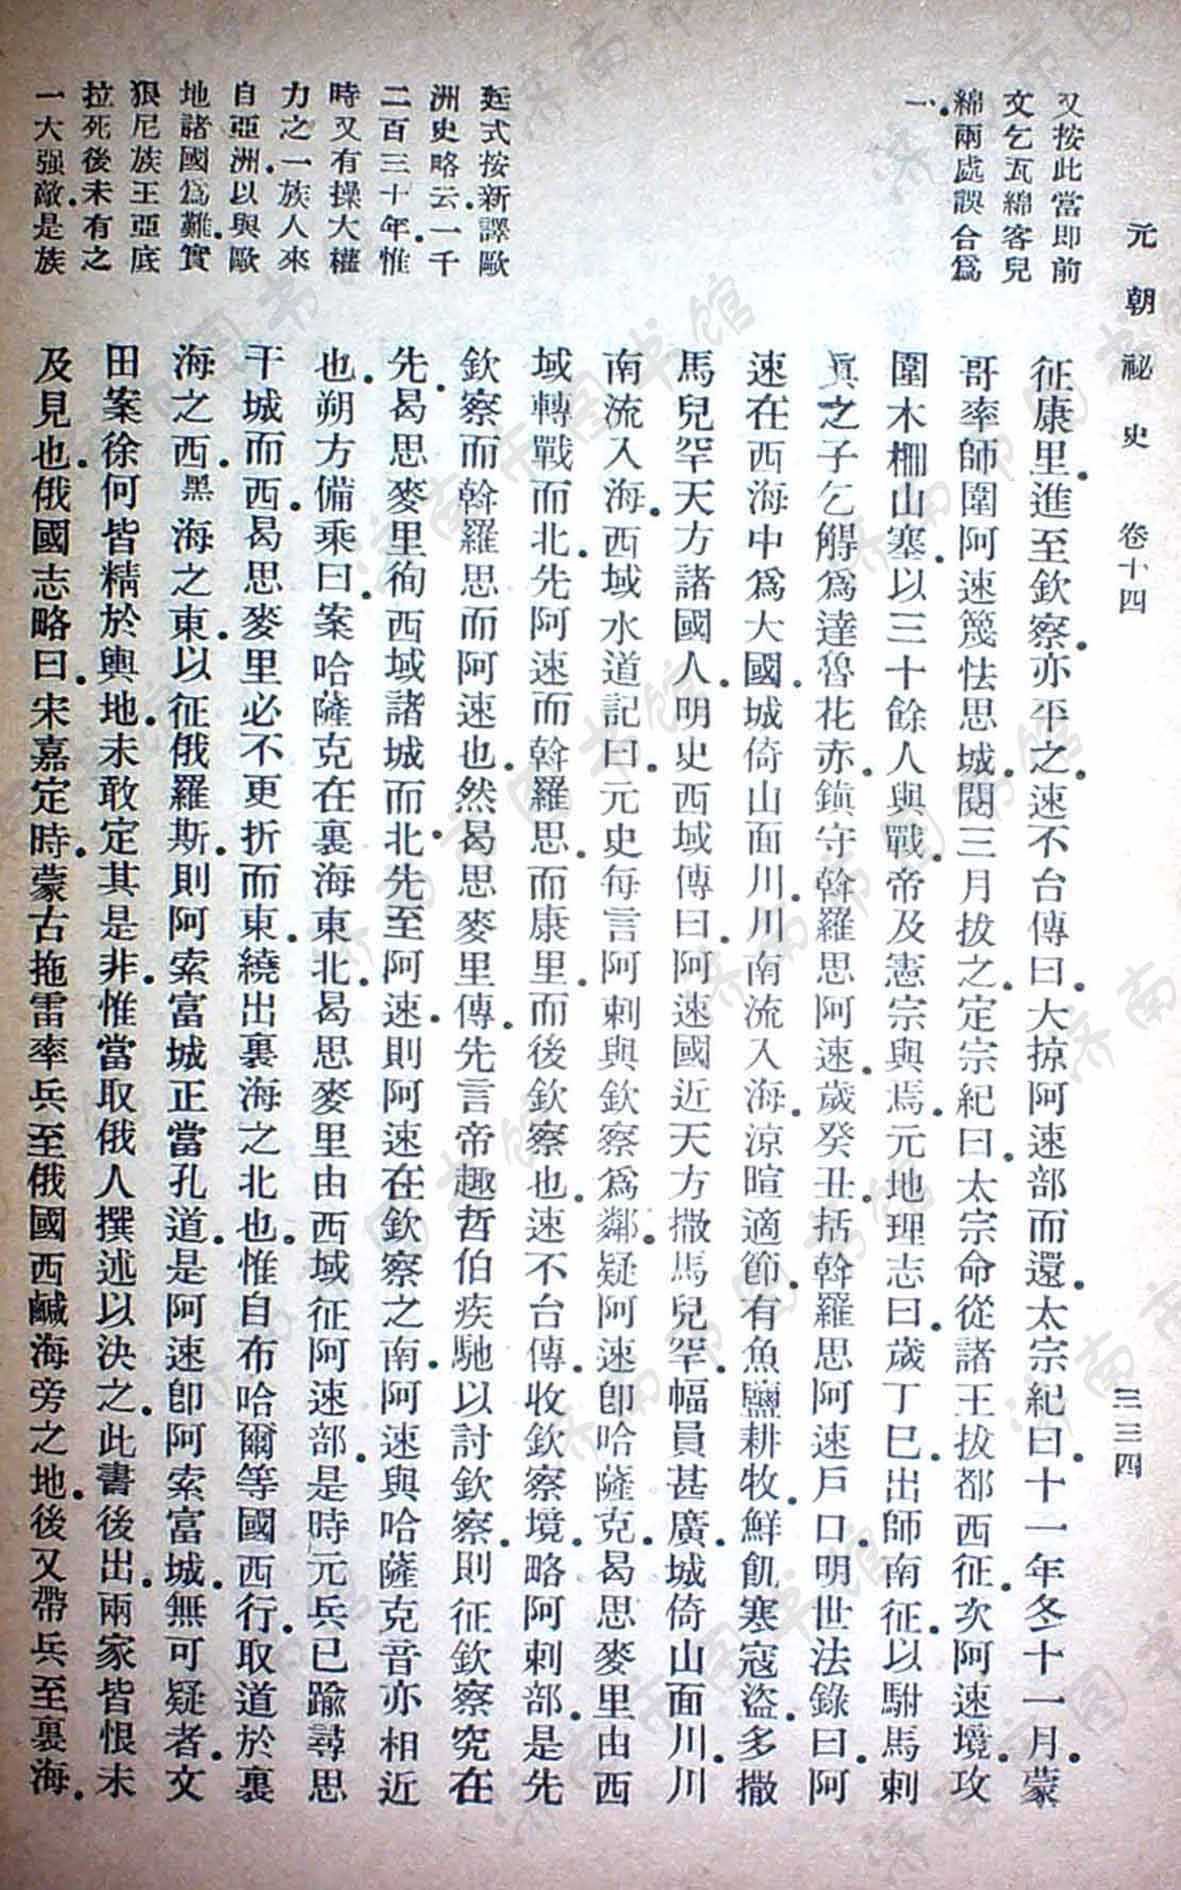 元朝祕史　卷十四　三三四
又按此當即前
文乞瓦綿客兒
綿兩處誤合爲
一
征康里進至欽察亦平之速不台傳曰大掠阿速部而還太宗紀曰十一年冬十一月蒙
哥率師圍阿速篾怯思城閱三月拔之定宗紀曰太宗命從諸王拔都西征次阿速境攻
圍木柵山寨以三十餘人與戰帝及憲宗與焉元地理志曰歲丁巳出師南征以駙馬剌
眞之子乞解爲達魯花赤鎮守斡羅思阿速歲癸丑括斡羅思阿速戶口明世法錄曰阿
速在西海中爲大國城倚山面川川南流入海涼暄適節有魚鹽耕牧鮮飢寒寇盜多撒
馬兒罕天方諸國人明史西域傳曰阿速國近天方撒馬兒罕幅員甚廣城倚山面川川
南流入海西域水道記曰元史每言阿剌與欽察爲鄰疑阿速卽哈薩克曷思麥里由西
域轉戰而北先阿速而斡羅思而康里而後欽察也速不台傳收欽察境略阿剌部是先
欽察而斡羅思而阿速也然曷思麥里傳先言帝趣哲伯疾馳以討欽察則征欽察究在
先曷思麥里徇西域諸城而北先至阿速則阿速在欽察之南阿速與哈薩克音亦相近
也朔方備乘曰案哈薩克在裏海東北曷思麥里由西域征阿速部是時元兵已踰尋思
干城而西曷思麥里必不更折而東繞出裏海之北也惟自布哈爾等國西行取道於裏
海之西黑海之東以征俄羅斯則阿索富城正當孔道是阿速卽阿索富城無可疑者文
田案徐何皆精於輿地未敢定其是非惟當取俄人撰述以決之此書後出兩家皆恨未
及見也俄國志略曰宋嘉定時蒙古拖雷率兵至俄國西鹹海旁之地後又帶兵至裏海
廷式按新譯歐
洲史略云一千
二百三十年惟
時又有操大權
力之一族人來
自亞洲以與歐
地諸國爲難實
狠尼族王亞底
拉死後未有之
一大强敵是族